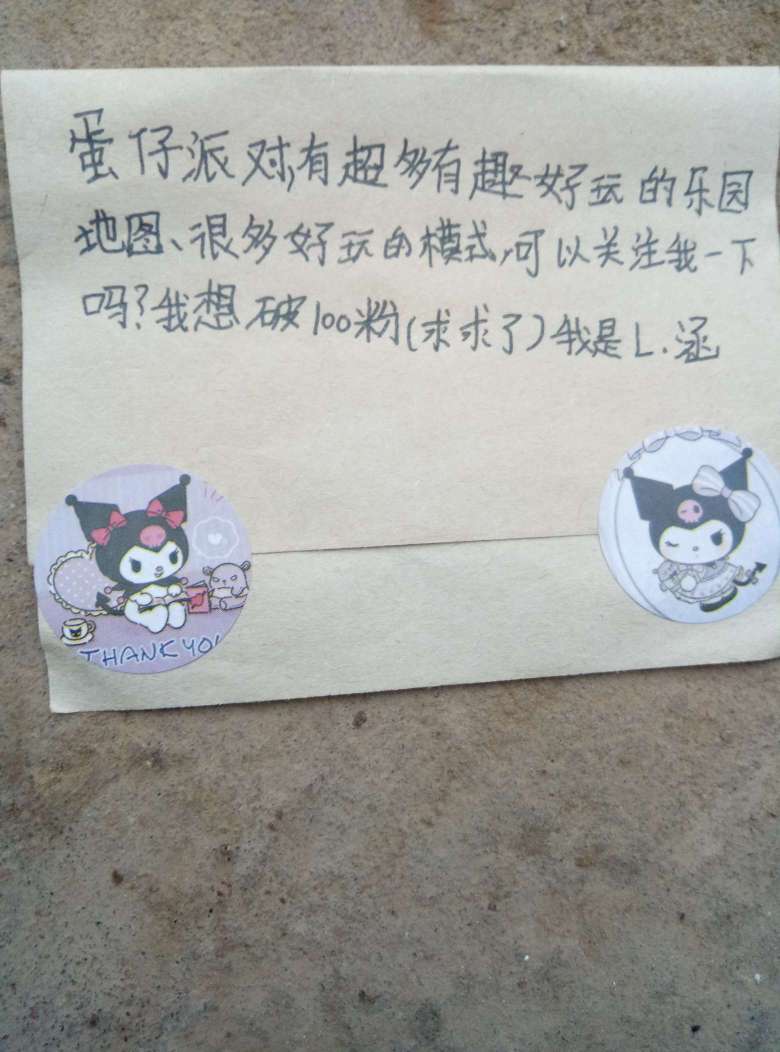 蛋仔派对,有超多有趣好玩的乐园
地图、很多好玩的模式,可以关注我一下
吗?我想破100粉(求求了)我是L.涵
THANK YOU